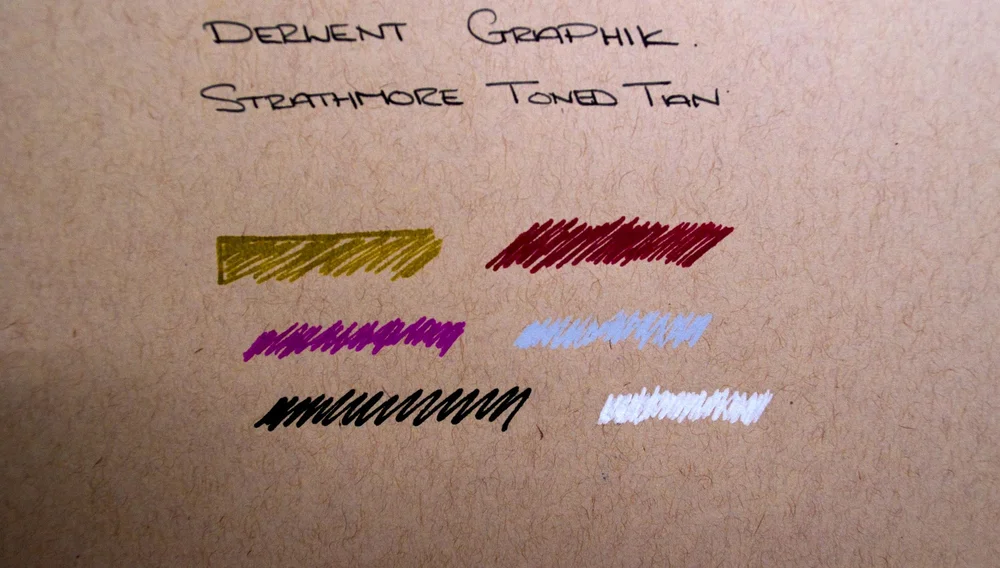 DERWENT GRAPHIK.
STRATHMORE TONED TAN